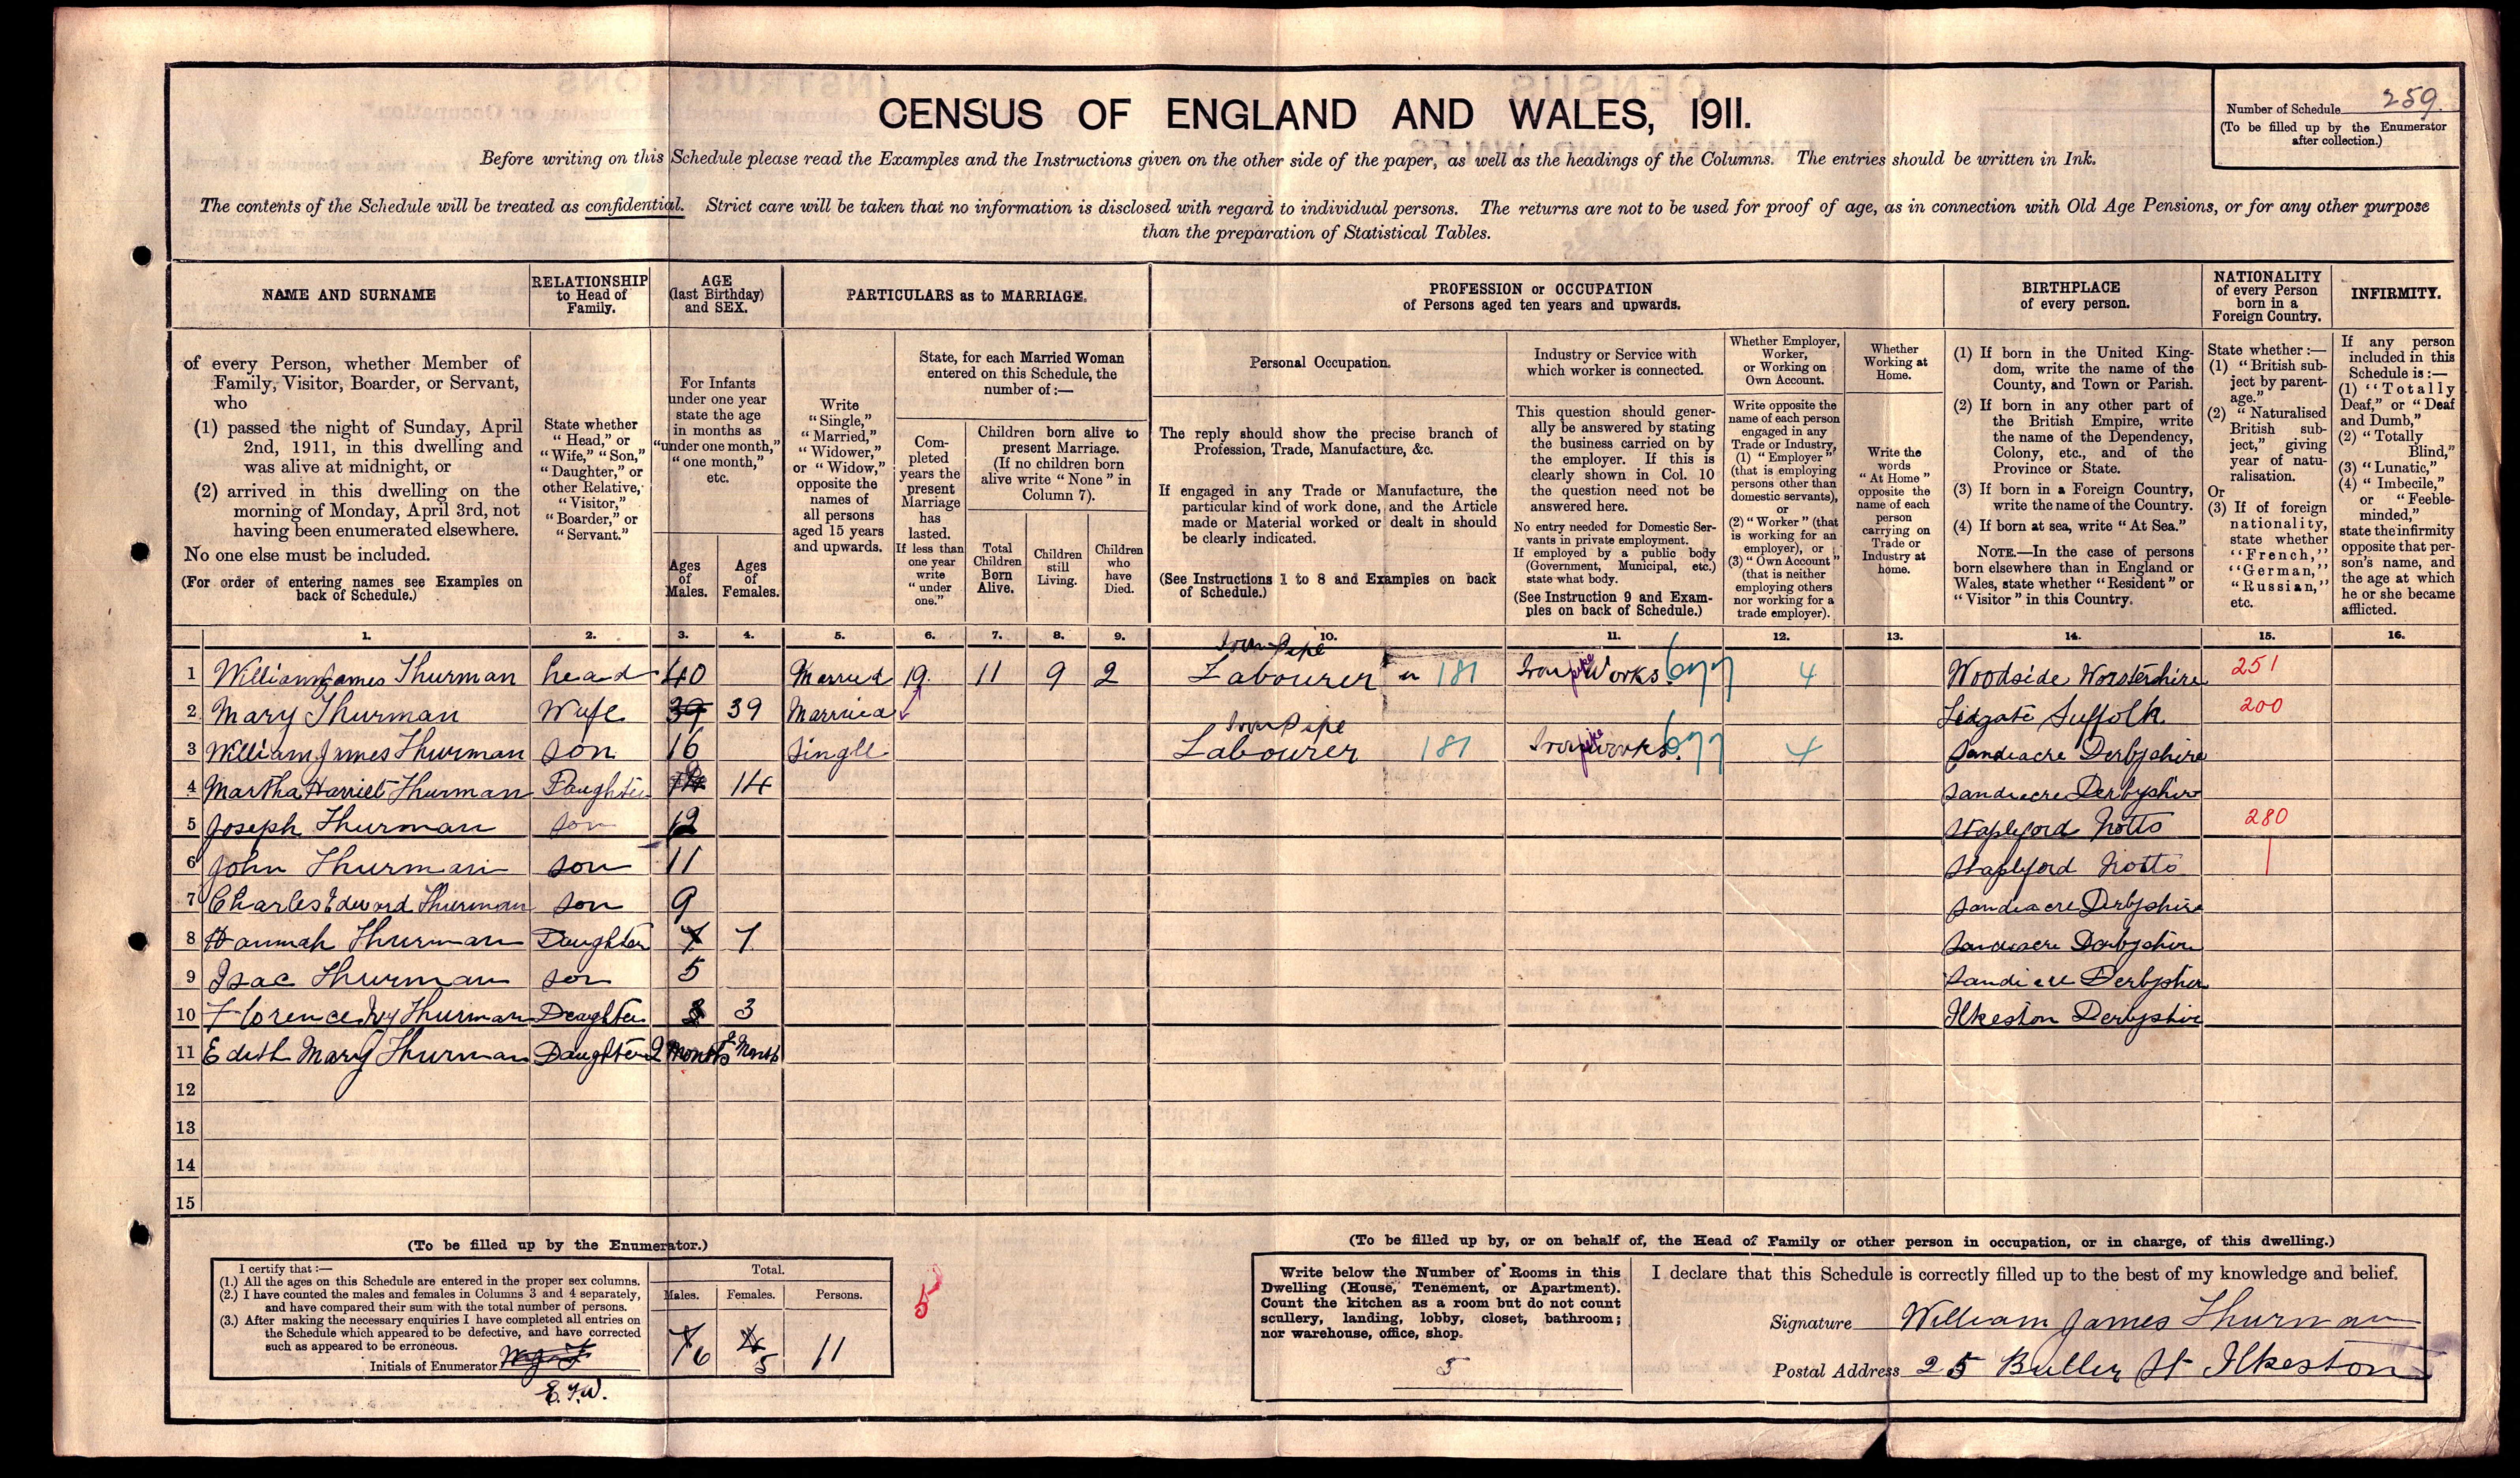 CENSUS OF ENGLAND AND WALES, 1911.
Number of Schedule 259.
(To be filled up by the Enumerator
after collection.)
Before writing on this Schedule please read the Examples and the Instructions given on the other side of the paper, as well as the headings of the Columns. The entries should be written in Ink.
The contents of the Schedule will be treated as confidential. Strict care will be taken that no information is disclosed with regard to individual persons. The returns are not to be used for proof of age, as in connection with Old Age Pensions, or for any other purpose
than the preparation of Statistical Tables.
NAME AND SURNAME
of every Person, whether Member of
Family, Visitor, Boarder, or Servant,
who
(1) passed the night of Sunday, April
2nd, 1911, in this dwelling and
was alive at midnight, or
(2) arrived in this dwelling on the
morning of Monday, April 3rd, not
having been enumerated elsewhere.
No one else must be included.
(For order of entering names see Examples on
back of Schedule.)
RELATIONSHIP
to Head of
Family.
State whether
"Head," or
"Wife," "Son,"
"Daughter," or
other Relative,
"Visitor,"
"Boarder," or
"Servant."
AGE
(last Birthday)
and SEX.
For Infants
under one year
state the age
in months as
"under one month,"
"one month,"
etc.
Ages
of
Males.
Ages
of
Females.
PARTICULARS as to MARRIAGE.
Write
"Single,"
"Married,"
"Widower,"
or "Widow,"
opposite the
names of
all persons
aged 15 years
and upwards.
State, for each Married Woman
entered on this Schedule, the
number of:—
Com-
pleted
years the
present
Marriage
has
lasted.
If less than
one year
write
"under
one."
Children born alive to
present Marriage.
(If no children born
alive write "None" in
Column 7).
Total
Children
Born
Alive.
Children
still
Living.
Children
who
have
Died.
PROFESSION or OCCUPATION
of Persons aged ten years and upwards.
Personal Occupation.
The reply should show the precise branch of
Profession, Trade, Manufacture, &c.
If engaged in any Trade or Manufacture, the
particular kind of work done, and the Article
made or Material worked or dealt in should
be clearly indicated.
(See Instructions 1 to 8 and Examples on back
of Schedule.)
Industry or Service with
which worker is connected.
This question should gener-
ally be answered by stating
the business carried on by
the employer. If this is
clearly shown in Col. 10
the question need not be
answered here.
No entry needed for Domestic Ser-
vants in private employment.
If employed by a public body
(Government, Municipal, etc.)
state what body.
(See Instruction 9 and Exam-
ples on back of Schedule.)
Whether Employer,
Worker,
or Working on
Own Account.
Write opposite the
name of each person
engaged in any
Trade or Industry,
(1) "Employer"
(that is employing
persons other than
domestic servants),
or
(2) "Worker" (that
is working for an
employer), or
(3) "Own Account"
(that is neither
employing others
nor working for a
trade employer).
Whether
Working at
Home.
Write the
words
"At Home"
opposite the
name of each
person
carrying on
Trade or
Industry at
home.
BIRTHPLACE
of every person.
(1) If born in the United King-
dom, write the name of the
County, and Town or Parish.
(2) If born in any other part of
the British Empire, write
the name of the Dependency,
Colony, etc., and of the
Province or State.
(3) If born in a Foreign Country,
write the name of the Country.
(4) If born at sea, write "At Sea."
NOTE.—In the case of persons
born elsewhere than in England or
Wales, state whether "Resident" or
"Visitor" in this Country.
NATIONALITY
of every Person
born in a
Foreign Country.
State whether:—
(1) "British sub-
ject by parent-
age."
(2) "Naturalised
British sub-
ject," giving
year of natu-
ralisation.
Or
(3) If of foreign
nationality,
state whether
"French,"
"German,"
"Russian,"
etc.
INFIRMITY.
If any person
included in this
Schedule is:—
(1) "Totally
Deaf," or "Deaf
and Dumb,"
(2) "Totally
Blind,"
(3) "Lunatic,"
(4) "Imbecile,"
or "Feeble-
minded,"
state the infirmity
opposite that per-
son's name, and
the age at which
he or she became
afflicted.
1. 2. 3. 4. 5. 6. 7. 8. 9. 10. 11. 12. 13. 14. 15. 16.
Iron Pipe
1 William James Thurman head 40 Married 19 11 9 2 Labourer 181 Iron pipe Works 677 4 Woodside Worstershire 251
2 Mary Thurman Wife 39 39 Married Lidgate Suffolk 200
Iron Pipe
3 William James Thurman son 16 Single Labourer 181 Iron pipe works 677 4 Sandiacre Derbyshire
4 Martha Harriet Thurman Daughter 14 Sandiacre Derbyshire
5 Joseph Thurman son 12 Stapleford Notts 280
6 John Thurman son 11 Stapleford Notts
7 Charles Edward Thurman son 9 Sandiacre Derbyshire
8 Hannah Thurman Daughter 7 7 Sandiacre Derbyshire
9 Isac Thurman son 5 Sandiacre Derbyshire
10 Florence Ivy Thurman Daughter 3 3 Ilkeston Derbyshire
11 Edith Mary Thurman Daughter 2 Months 2 Months
12
13
14
15
(To be filled up by the Enumerator.)
I certify that:—
(1.) All the ages on this Schedule are entered in the proper sex columns.
(2.) I have counted the males and females in Columns 3 and 4 separately,
and have compared their sum with the total number of persons.
(3.) After making the necessary enquiries I have completed all entries on
the Schedule which appeared to be defective, and have corrected
such as appeared to be erroneous.
Initials of Enumerator
E.F.W.
Total.
Males. Females. Persons.
7 6 4 5 11
5
(To be filled up by, or on behalf of, the Head of Family or other person in occupation, or in charge, of this dwelling.)
Write below the Number of Rooms in this
Dwelling (House, Tenement, or Apartment).
Count the kitchen as a room but do not count
scullery, landing, lobby, closet, bathroom;
nor warehouse, office, shop.
5
I declare that this Schedule is correctly filled up to the best of my knowledge and belief.
Signature William James Thurman
Postal Address 25 Butler St Ilkeston